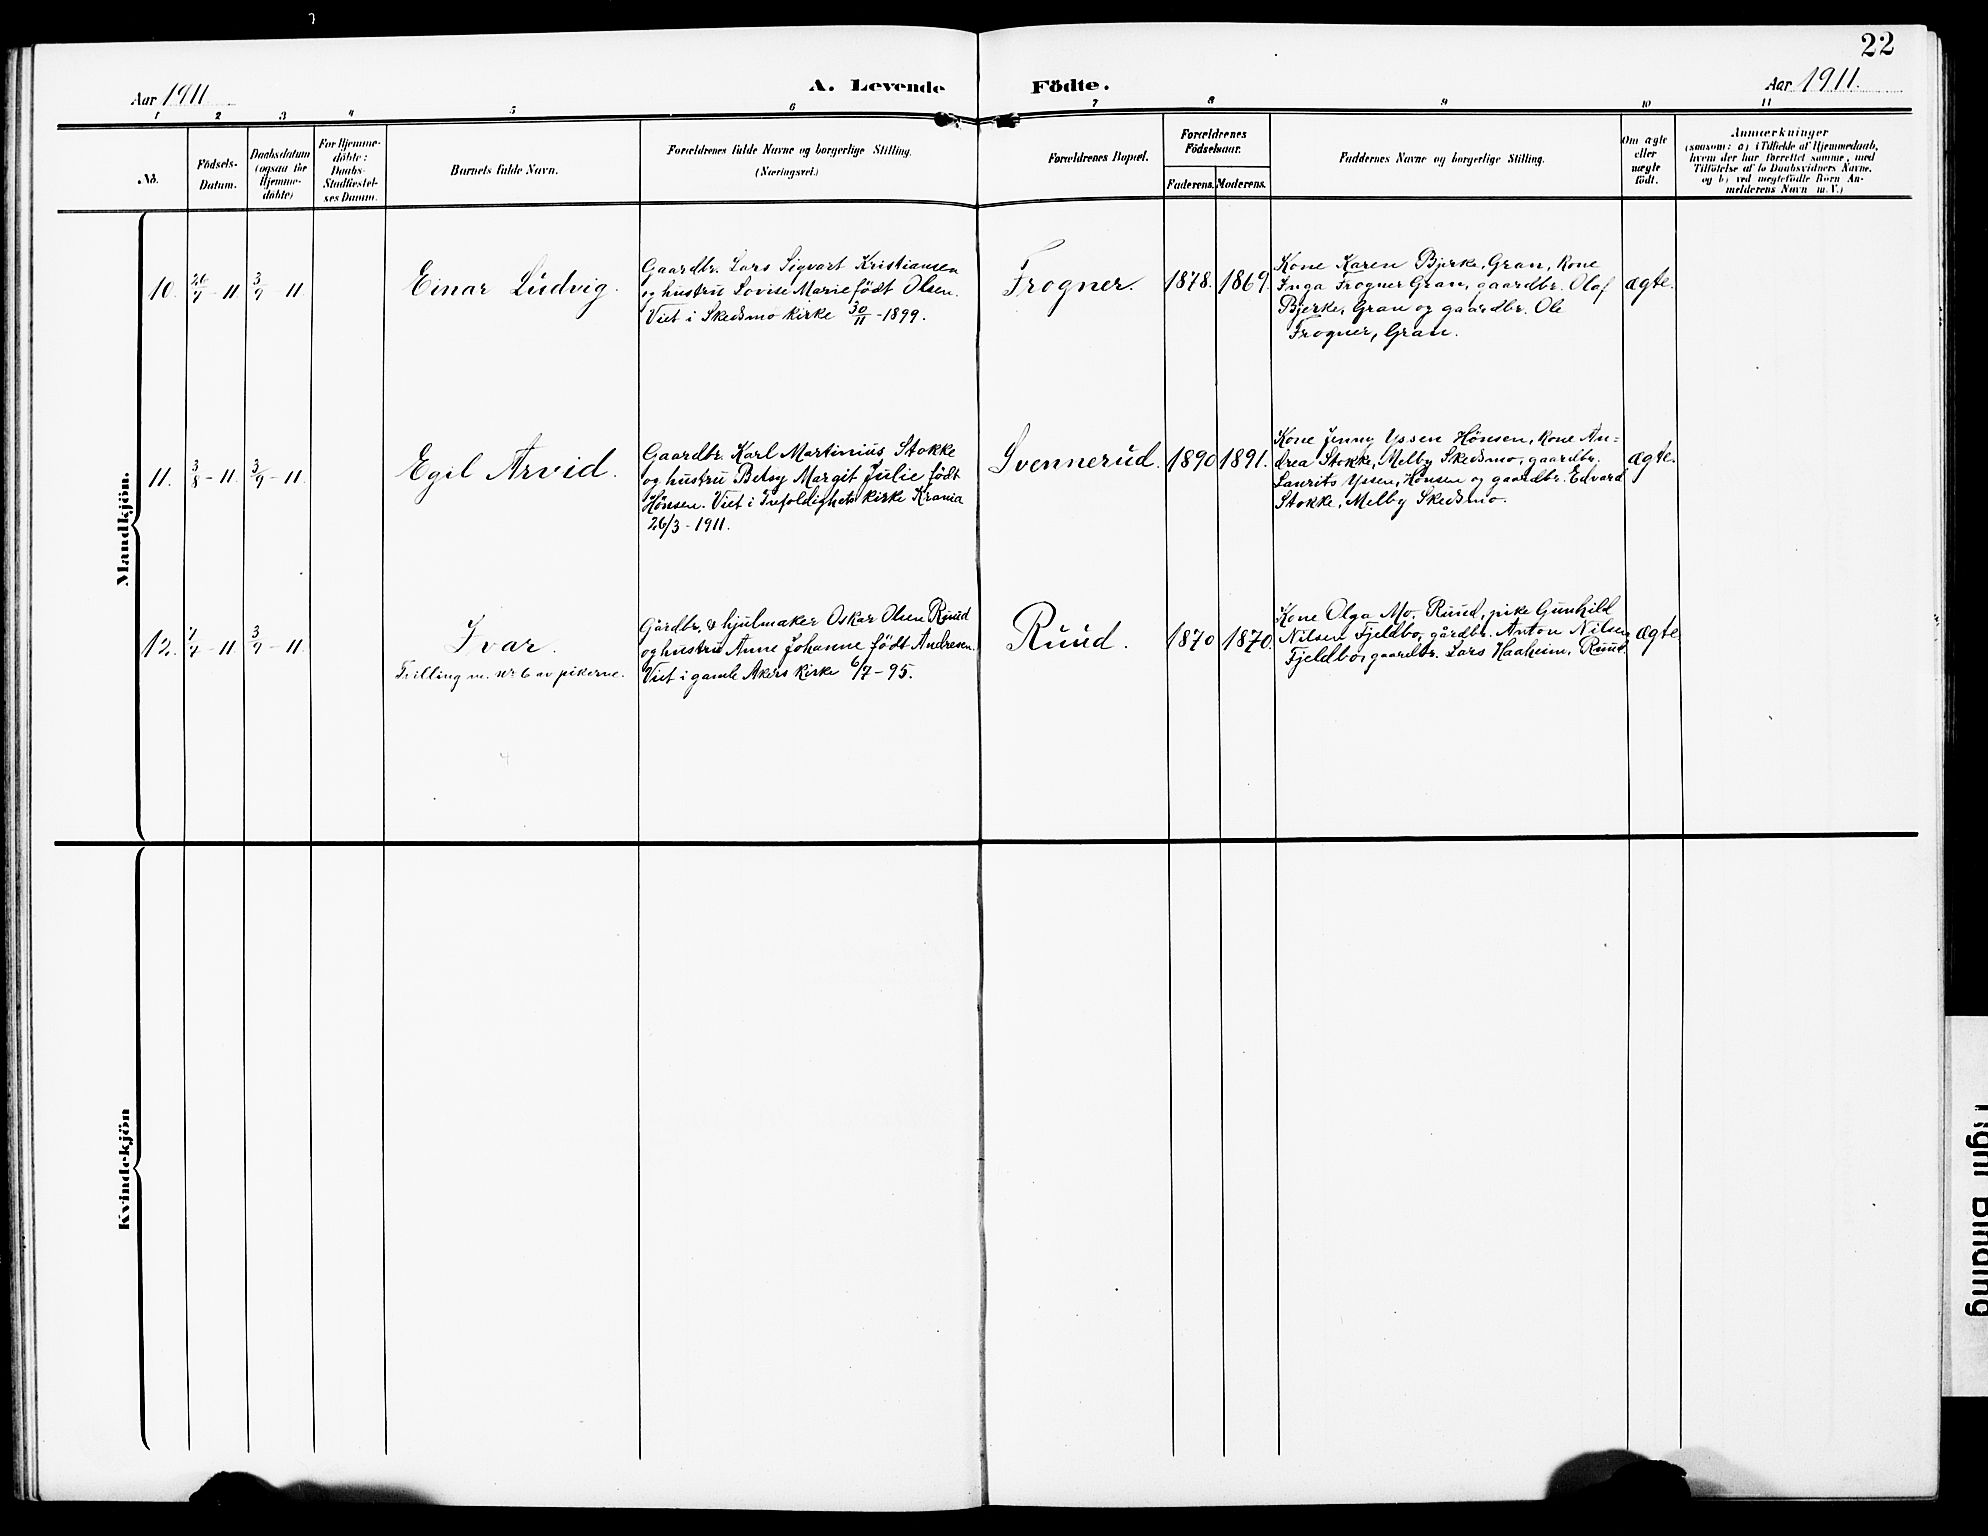 22
Aar 1911
A. Levende Födte.
Aar 1911.
1 2 3 4 5 6 7 8 9 10 11
No.
Födsels-
Datum.
Daabsdatum
(ogsaa for
Hjemme-
döbte)
For Hjemme-
döbte:
Daabs-
Stadfæstel-
ses Datum.
Barnets fulde Navn.
Forældrenes fulde Navne og borgerlige Stilling.
(Næringsvei.)
Forældrenes Bopæl.
Forældrenes
Födselsaar.
Faderens. Moderens.
Faddernes Navne og borgerlige Stilling.
Om ægte
eller
uægte
født.
Anmærkninger
(saasom: a) i Tilfælde af Hjemmedaab,
hvem der har forrettet samme, med
Tilföielse af to Daabsvidners Navne,
og b) ved uægtefödte Börn An-
melderens Navn m. V.)
Mandkjön.
10.
26/7 - 11
3/9 - 11
Einar Ludvig.
Gaardbr. Lars Sigvart Kristiansen
og hustru Lovise Marie født Olsen.
Viet i Skedsmo kirke 30/11 - 1899.
Frogner.
1878. 1869.
Kone Karen Bjerke, Gran, kone
Inga Frogner Gran, gaardbr. Olaf
Bjerke, Gran og gaardbr. Ole
Frogner, Gran.
ægte.
11.
3/8 - 11
3/9 - 11
Egil Arvid.
Gaardbr. Karl Martinius Stokke
og hustru Betsy Margit Julie født
Hønsen. Viet i Trefoldighets kirke Krania
26/3 - 1911.
Svennerud.
1890 1891.
Kone Jenny Yssen Hønsen, kone An=
drea Stokke, Melby Skedsmo, gaardbr.
Laurits Yssen, Hønsen og gaardbr. Edvard
Stokke, Melby Skedsmo.
ægte.
12.
3/9 - 11
Ivar.
Tvilling m. nr 6 av pikerne.
Gårdbr. & hjulmaker Oskar Olsen Ruud
og hustru Anne Johanne født Andresen.
Viet i gamle Akers kirke 6/7 - 95.
Ruud.
1870 1870.
Kone Olga Mo, Ruud, pike Gunhild
Nilsen Fjeldbo, gårdbr. Anton Nilsen
Fjeldbo, gaardbr. Lars Haaheim, Ruud.
ægte
Kvindekjön
Binding